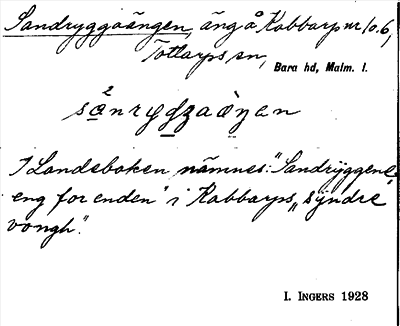 Sandryggaängen, äng å Kabbarp nr 10.6,
Tottarps sn, Bara hd, Malm. l.
sa²nrygzaàŋen
I Landeboken nämnes: "Sandrÿggene
eng for enden" i Kabbarps "sÿndre
vongh".
I. INGERS 1928